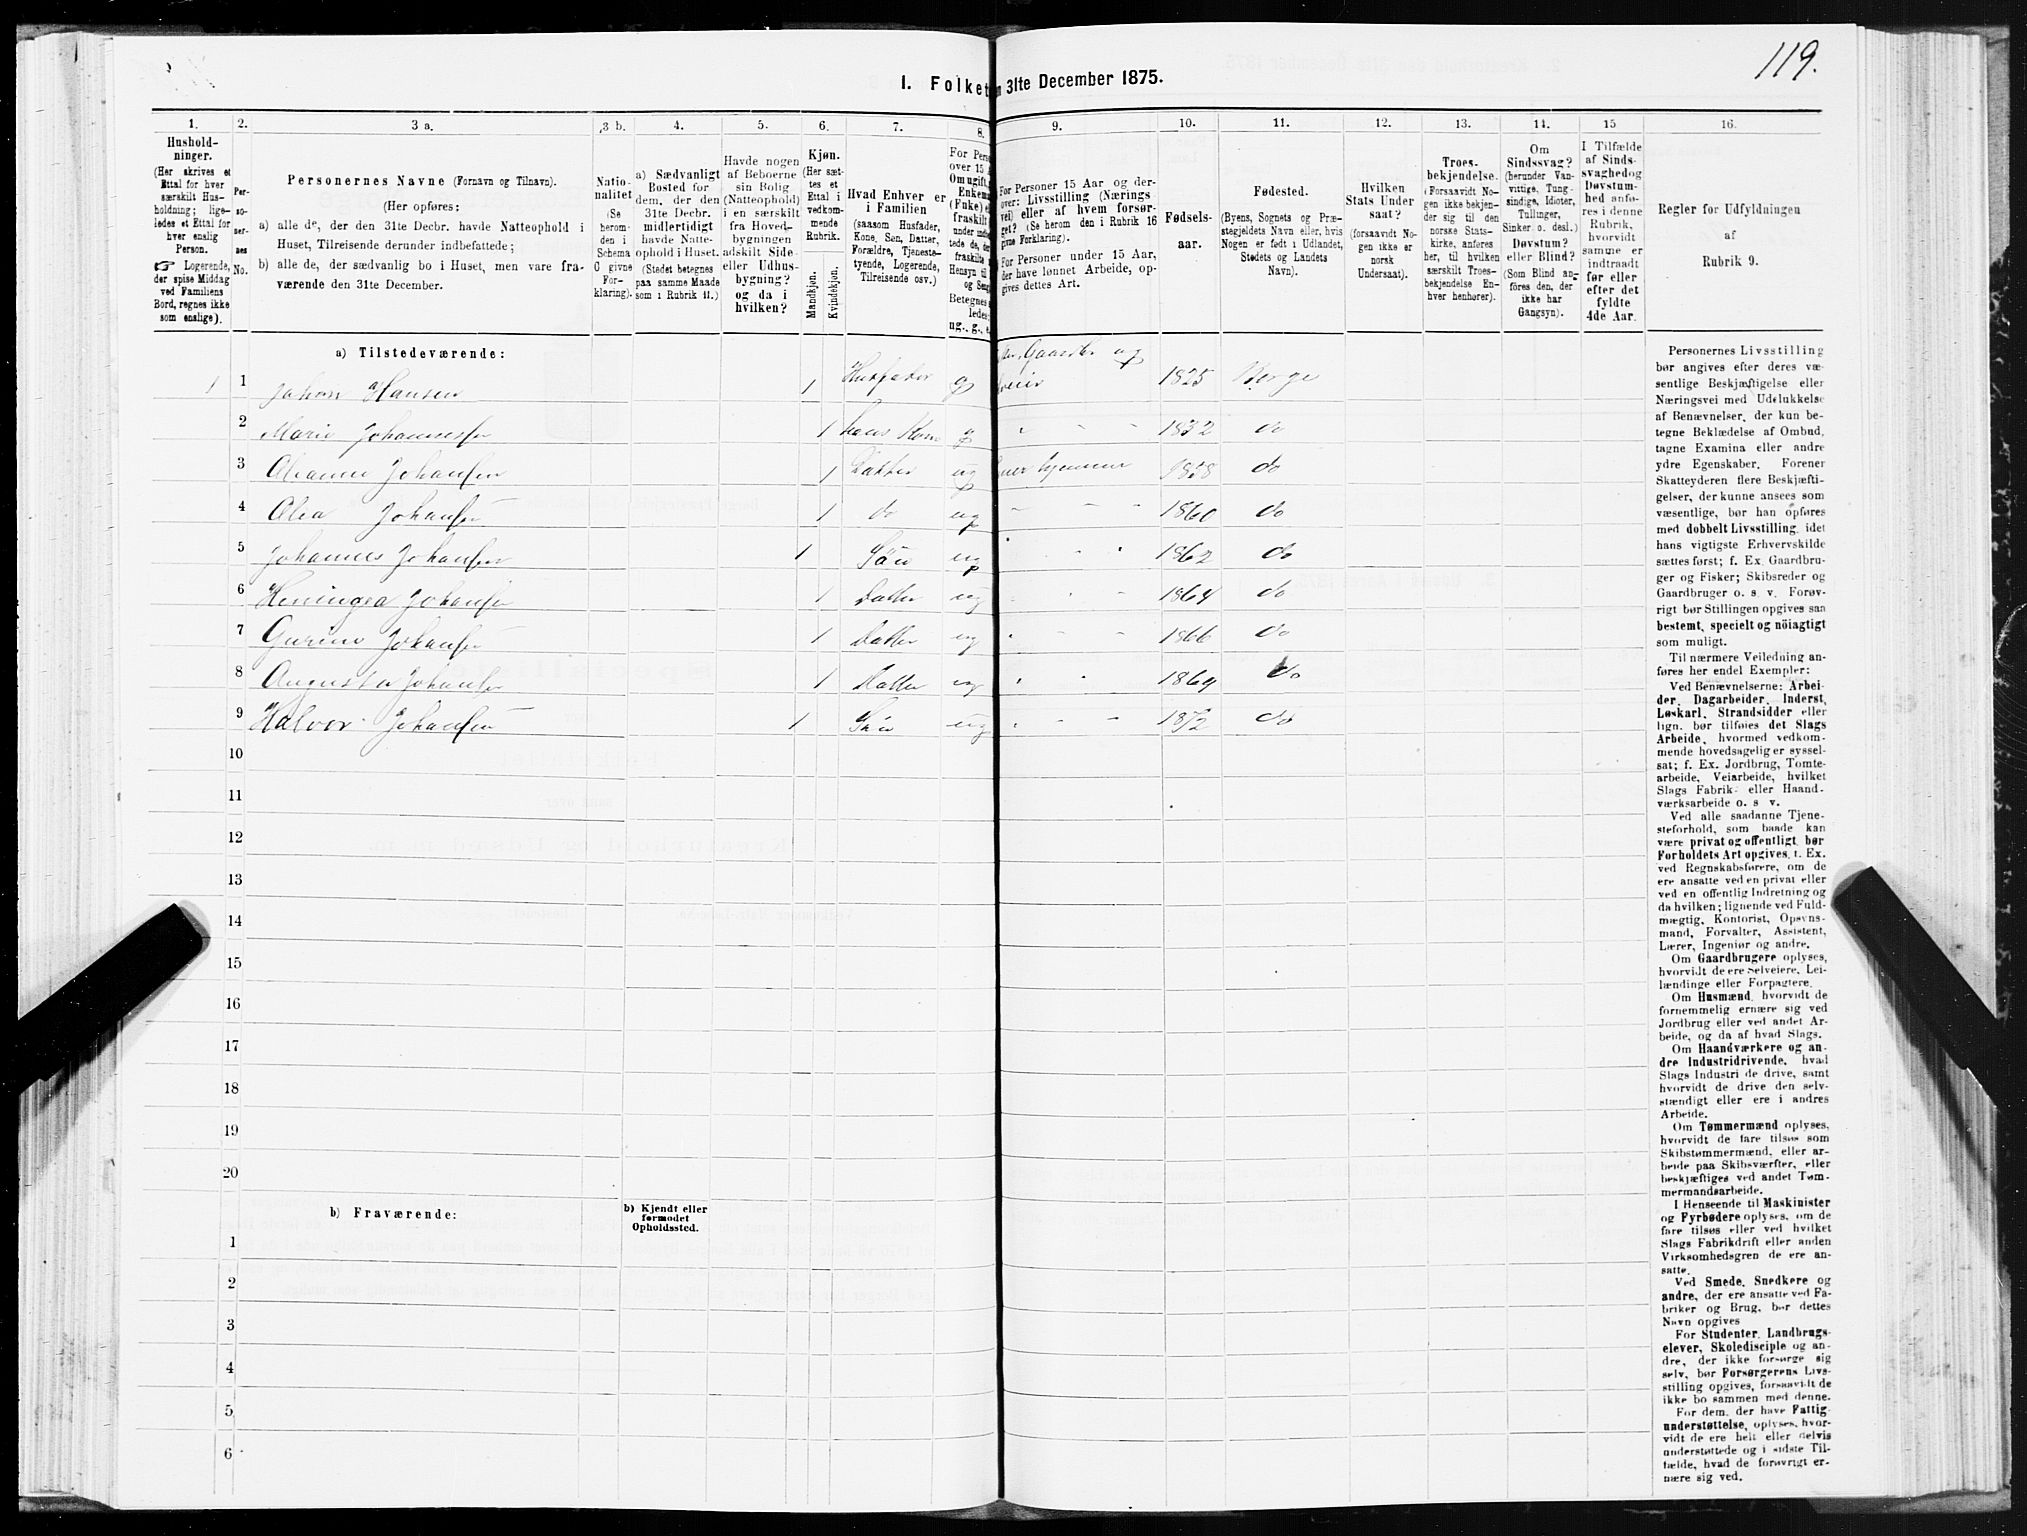 119.
I. Folket
n 31te December 1875.
1.
2.
3 a.
3 b.
4.
5.
6.
7.
8.
9.
10.
11.
12.
13.
14.
15
16.
Hushold-
ninger.
(Her skrives et
Ettal for hver
særskilt Hus-
holdning; lige-
ledes et Ettal for
hver enslig
Person.
☞ Logerende,
der spise Middag
ved Familiens
Bord, regnes ikke
som enslige).
Per-
so-
ner-
nes
No.
Personernes Navne (Fornavn og Tilnavn).
(Her opføres:
a) alle de, der den 31te Decbr. havde Natteophold i
Huset, Tilreisende derunder indbefattede;
b) alle de, der sædvanlig bo i Huset, men vare fra-
værende den 31te December.
Natio-
nalitet
(Se
herom
den i
Schema
C givne
For-
klaring).
a) Sædvanligt
Bosted for
dem, der den
31te Decbr.
midlertidigt
havde Natte-
ophold i Huset.
(Stedet betegnes
paa samme Maade
som i Rubrik 11.)
Havde nogen
af Beboerne
sin Bolig
(Natteophold)
i en særskilt
fra Hoved-
bygningen
adskilt Side-
eller Udhus-
bygning?
og da i
hvilken?
Kjøn.
(Her sæt-
tes et
Ettal i
vedkom-
mende
Rubrik.
Mandkjøn.
Kvindekjøn.
Hvad Enhver er
i Familien
(saasom Husfader,
Kone, Søn, Datter,
Forældre, Tjeneste-
tyende, Logerende,
Tilreisende osv.)
For Pers
over 15 A
Om ugift,
Enkem
(Fuke) e
fraskilt
under indbe-
tede de, de
fraskilte,
Hensyn til
og Seng
Betegnes
ledes:
ug., g., e.
For Personer 15 Aar og der-
over: Livsstilling (Nærings-
vei) eller af hvem forsør-
get? (Se herom den i Rubrik 16
givne Forklaring).
For Personer under 15 Aar,
der have lønnet Arbeide, op-
gives dettes Art.
Fødsels-
aar.
Fødested.
(Byens, Sognets og Præ-
stegjeldets Navn eller, hvis
Nogen er født i Udlandet,
Stedets og Landets
Navn).
Hvilken
Stats Under
saat?
(forsaavidt No-
gen ikke er
norsk
Undersaat).
Troes-
bekjendelse.
(Forsaavidt No-
gen ikke bekjen-
der sig til den
norske Stats-
kirke, anføres
her, til hvilken
særskilt Troes-
bekjendelse En-
hver henhører).
Om
Sindssvag?
(herunder Van-
vittige, Tung-
sindige, Idioter,
Tullinger,
Sinker o. desl.)
Døvstum?
eller Blind?
(Som Blind an-
føres den, der
ikke har
Gangsyn).
I Tilfælde
af Sinds-
svaghed og
Døvstum-
hed anfø-
res i denne
Rubrik,
hvorvidt
samme er
indtraadt
før eller
efter det
fyldte
4de Aar.
Regler for Udfyldningen
af
Rubrik 9.
a) Tilstedeværende:
1 1 Johan Hansen 1 Husfader g Gaardbr og 1825 Berge
2 Marie Johannesen 1 hans Kone g 1832 do
3 Johansen 1 Datter ug 1858 do
4 Olea Johansen 1 do ug 1860 do
5 Johannes Johansen 1 Søn ug 1862 do
6 Heningea Johansen 1 Datter ug 1864 do
7 Gurine Johansen 1 Datter ug 1866 do
8 Augusta Johansen 1 Datter ug 1869 do
9 Halvor Johansen 1 Søn ug 1872 do
10
11
12
13
14
15
16
17
18
19
20
b) Fraværende:
b) Kjendt eller
formodet
Opholdssted.
1
2
3
4
5
6
Personernes Livsstilling
bør angives efter deres væ-
sentlige Beskjæftigelse eller
Næringsvei med Udelukkelse
af Benævnelser, der kun be-
tegne Beklædelse af Ombud,
tagne Examina eller andre
ydre Egenskaber. Forener
Skatteyderen flere Beskjæfti-
gelser, der kunne ansees som
væsentlige, bør han opføres
med dobbelt Livsstilling, idet
hans vigtigste Erhvervskilde
sættes først; f. Ex. Gaardbru-
ger og Fisker; Skibsreder og
Gaardbruger o. s. v. Forøv-
rigt bør Stillingen opgives saa
bestemt, specielt og nöiagtigt
som muligt.
Til nærmere Veiledning an-
føres her endel Exempler:
Ved Benævnelserne: Arbei-
der, Dagarbeider, Inderst,
Løskarl, Strandsidder eller
lign. bør tilføies det Slags
Arbeide, hvormed vedkom-
mende hovedsagelig er syssel-
sat; f. Ex. Jordbrug, Tomte-
arbeide, Veiarbeide, hvilket
Slags Fabrik- eller Haand-
værksarbeide o. s v.
Ved alle saadanne Tjene-
steforhold, som baade kan
være privat og offentligt, bør
Forholdets Art opgives, f. Ex.
ved Regnskabsførere, om de
ere ansatte ved en privat eller
ved en offentlig Indretning og
da hvilken; lignende ved Fuld-
mægtig, Kontorist, Opsyns-
mand, Forvalter, Assistent,
Lærer, Ingeniør og andre.
Om Gaardbrugere oplyses,
hvorvidt de ere Selveiere, Lei-
lændinge eller Forpagtere.
Om Husmænd, hvorvidt de
fornemmelig ernære sig ved
Jordbrug eller ved andet Ar-
beide, og da af hvad Slags.
Om Haandværkere og an-
dre Industridrivende, hvad
Slags Industri de drive, samt
hvorvidt de drive den selv-
stændigt eller ere i andres
Arbeide.
Om Tømmermænd oplyses,
hvorvidt de fare tilsøs som
Skibstømmermænd, eller ar-
beide paa Skibsværfter, eller
beskjæftiges ved andet Tøm-
mermandsarbeide.
I Henseende til Maskinister
og Fyrbødere oplyses, om de
fare tilsøs eller ved hvilket
Slags Fabrikdrift eller anden
Virksomhedsgren de ere an-
satte.
Ved Smede, Snedkere og
andre, der ere ansatte ved Fa-
briker og Brug, bør dettes
Navn opgives
For Studenter, Landbrugs-
elever, Skoledisciple og an-
dre, der ikke forsørge sig
selv, bør Forsørgerens Livs-
stilling opgives, forsaavidt de
ikke bo sammen med denne.
For dem, der have Fattig-
understøttelse, oplyses, hvor-
vidt de ere helt eller delvis
understøttede og i sidste Til-
fælde, hvad de forøvrigt er-
nære sig ved.